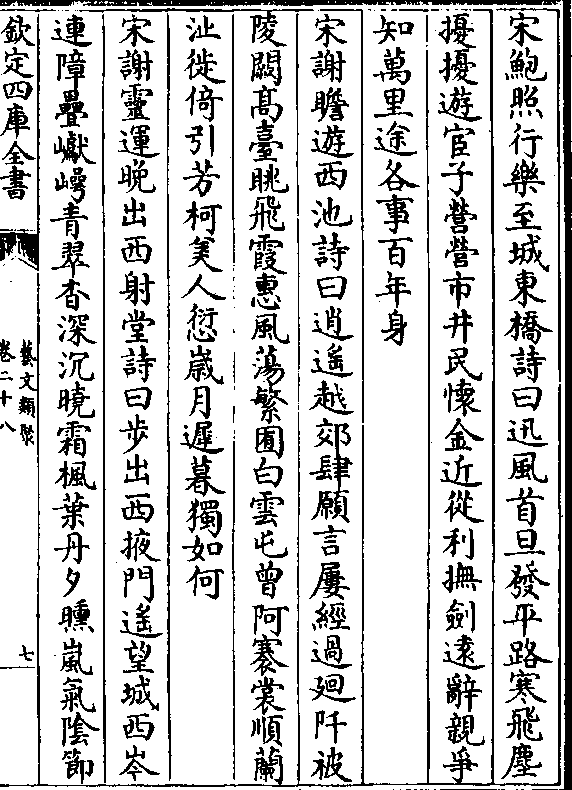 宋鮑照行樂至城東橋詩曰迅風首旦發平路塞飛塵
擾擾遊宦子營營市井民懷金近從利撫劍遠辭親爭
知萬里途各事百年身
宋謝瞻遊西池詩曰逍遙越郊肆願言屢經過廻阡被
陵闕髙臺眺飛霞惠風蕩繁囿白雲屯曾阿褰裳順蘭
沚徙倚引芳柯羙人愆嵗月遲暮獨如何
宋謝靈運晚出西射堂詩曰步出西掖門遙望城西岑
連障疊巘崿青翠杳深沉曉霜楓葉丹夕曛嵐氣陰節
欽定四庫全書
藝文類聚
卷二十八
七